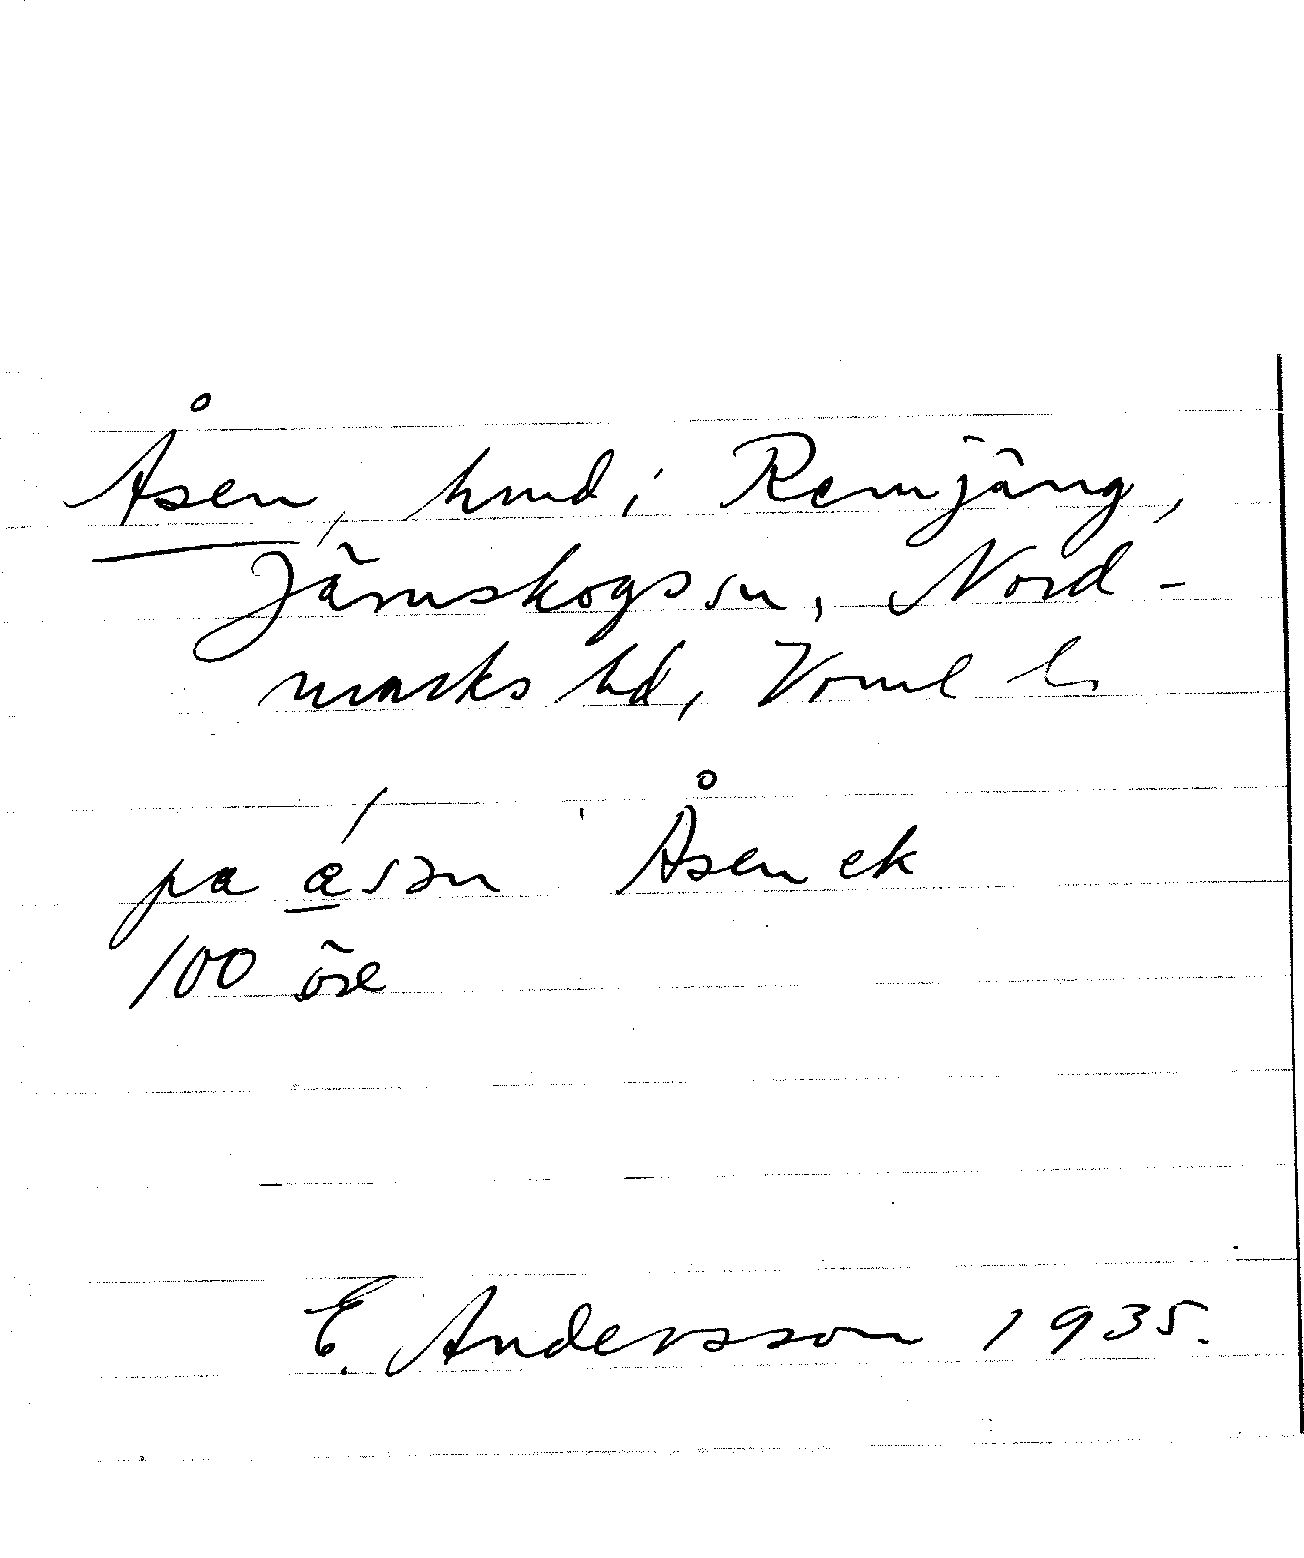 Åsen, hmd i Remjäng,
Järnskogs sn, Nord-
marks hd, Vrml l.
pa ása̱n Åsen ek
100 öre
E. Andersson 1935.